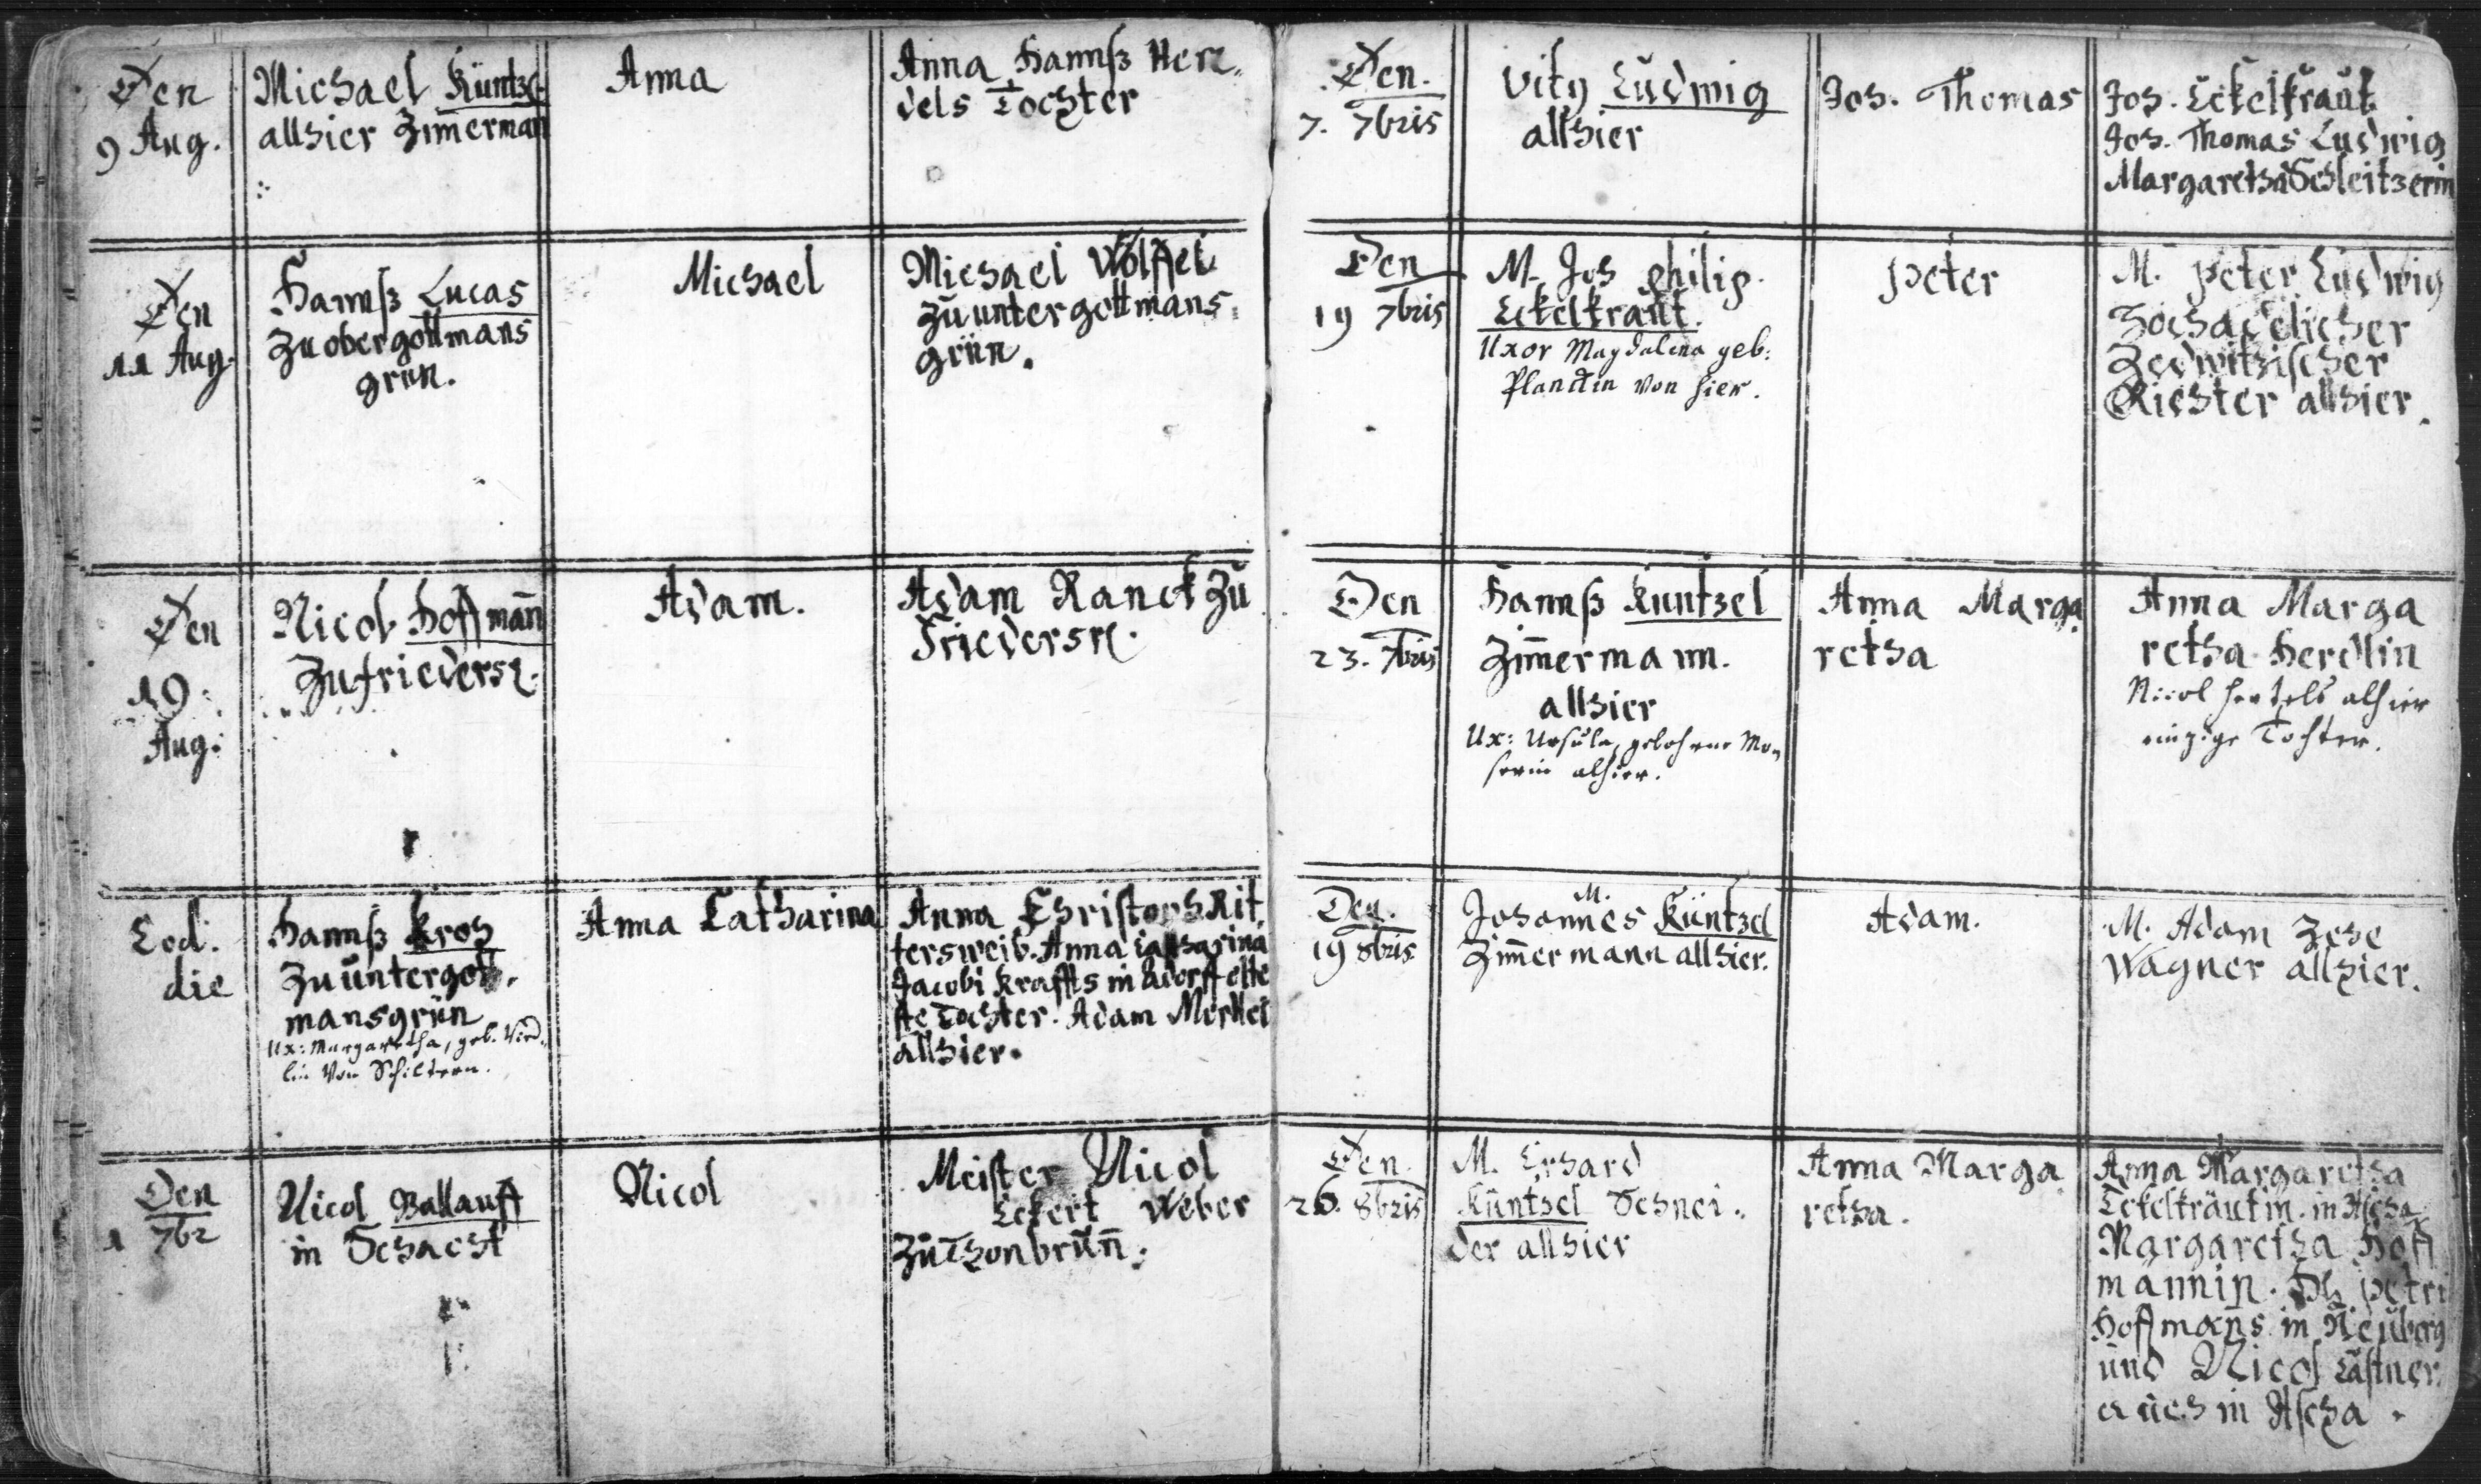 Den
9 Aug.
Michael Küntzel
allhier Zim̄erman
Anna
Anna Hannß Her⸗
dels Tochter
Den
11 Aug.
Hannß Lucas
Zu obergottmans
grün.
Michael
Michael Wölffel
Zu untergottmans⸗
grün.
Den
19.
Aug:
Nicol Hoffman̄
Zu friedersr.
Adam.
Adam Ranck Zu
Friedersr.
Eod.
die
Hannß Kroh
Zu untergott⸗
mansgrün
Ux: Margaretha, geb. Vierd⸗
lin von Schiltern.
Anna Catharina
Anna Christoph Rit⸗
tersweib. Anna Catharina
Jacobi Kraffts in Adorff elte
ste Tochter. Adam Merkel
allhier.
Den
1 7br
Nicol Ballauff
in Schacht
Nicol
Meister Nicol
Eckert Weber
Zu Thonbrun̄.
Den.
7. 7bris
Vity Ludwig
allhier
Joh. Thomas
Joh. Eckelkraut
Joh. Thomas Ludwig
Margaretha Schleitzerin
Den
19 7bris
M. Joh philip.
Eckelkraut.
Uxor Magdalena geb:
Planckin von hier.
Peter
M. Peter Ludwig
Hochadelicher
Zedwitzischer
Richter allhier.
Den
23. 7bris
Hannß Kuntzel
Zim̄ermann.
allhier
Ux: Ursula, gebohrne Mo⸗
serin alhier.
Anna Marga
retha
Anna Marga
retha Herdlin
Nicol Hertels alhier
einzige Tochter.
Den.
19 8bris
M.
Johannes Küntzel
Zim̄ermann allhier.
Adam.
M. Adam Zehe
Wagner allhier.
Den.
26. 8bris
M. Erhard
Küntzel Schnei⸗
der allhier
Anna Marga
retha.
Anna Margaretha
Eckelkräutin. in Ascha
Margaretha Hoff
mannin. Petri
Hoffman̄s in Neuberg
und Nicol Castner
auch in Ascha.